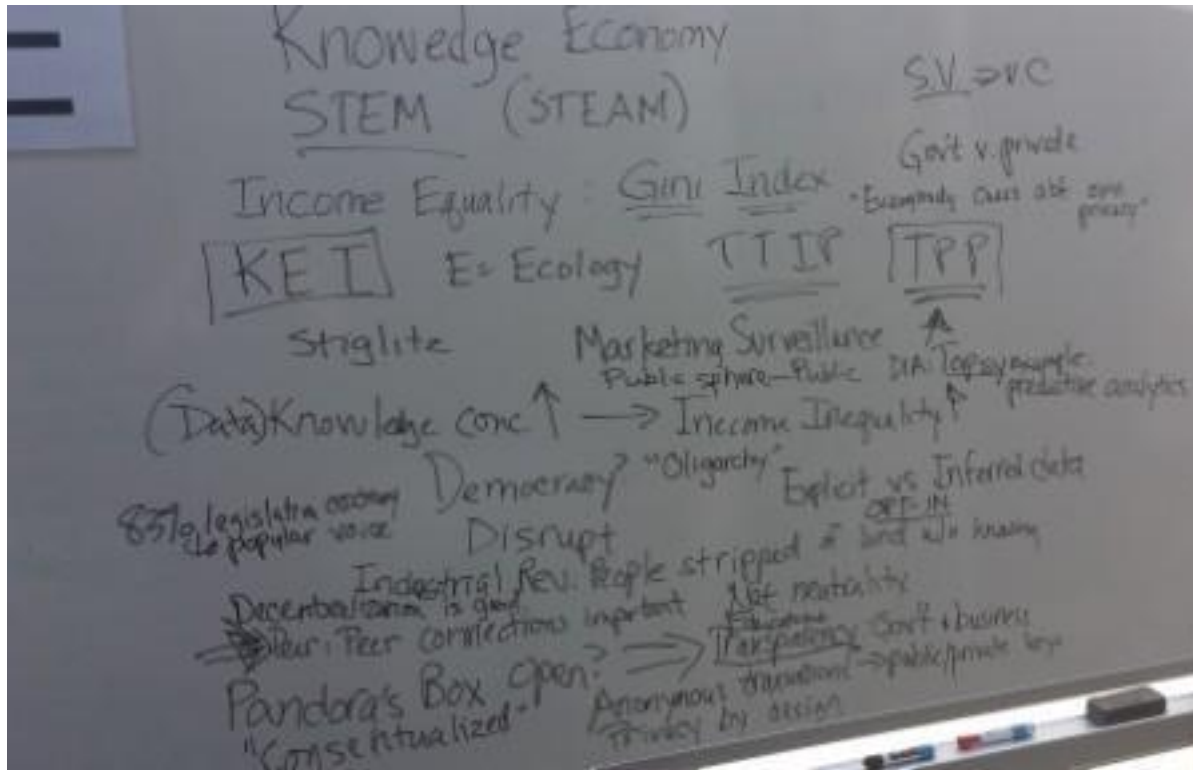 Knowedge Economy
STEM (STEAM)
S.V ⇒ VC
Gov't v. private
Income Equality : Gini Index
"Everybody cares abt own privacy"
KEI E = Ecology TTIP TPP
Stiglite
Marketing Surveillance
Public sphere - Public DIA: Topsy example
predictive analytics
(Data) Knowledge conc ↑ → Income Inequality ↑
Democracy? "Oligarchy"
83% legislation
popular voice
Explicit vs Inferred data
OPT-IN
Disrupt
Industrial Rev: People stripped of land w/o knowing
Decentralization is good
Net neutrality
Peer: Peer connections important
Education
Transparency Gov't + business
Pandora's Box open? ⇒
Anonymous transactions → public/private keys
"Consentualized"
Privacy by design